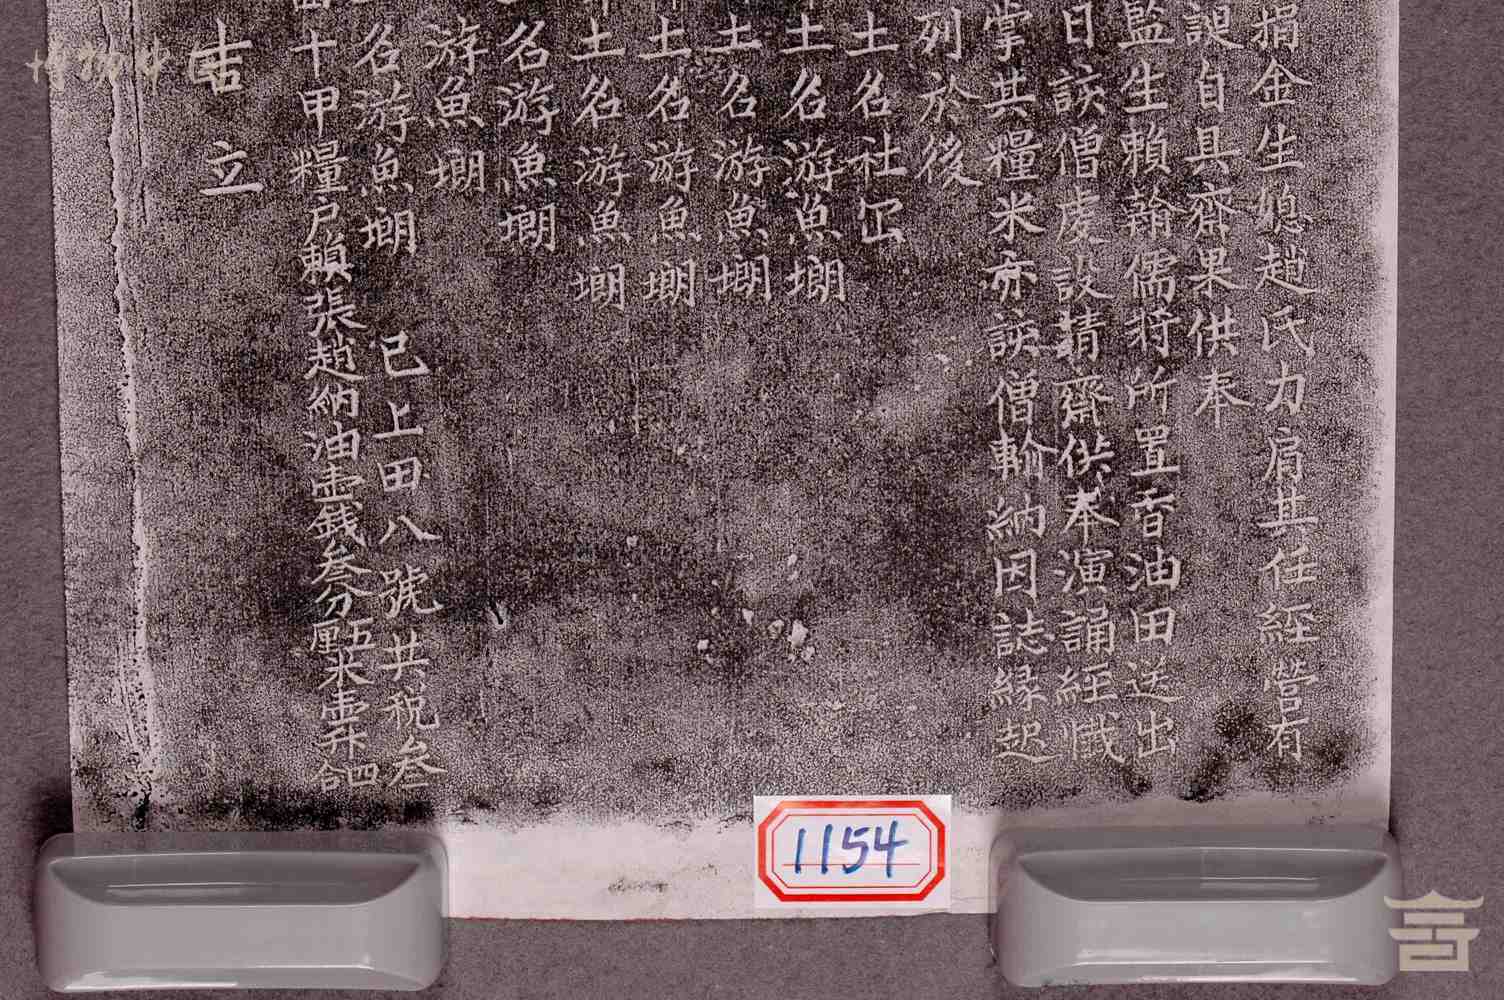 捐金生媳趙氏力肩其任經營有
諟自具齋果供奉
監生賴翰儒將所置香油田送出
日該僧虔設精齋供奉演誦經懺
掌其糧米亦該僧輸納因誌緣起
列於後
土名社𡇈
土名游魚塱
土名游魚塱
土名游魚塱
土名游魚塱
名游魚塱
游魚塱
名游魚塱 已上田八號共稅叁
十甲糧戶賴張趙納油壹錢叁分五厘米壹升四合
吉立
1154
博物中国